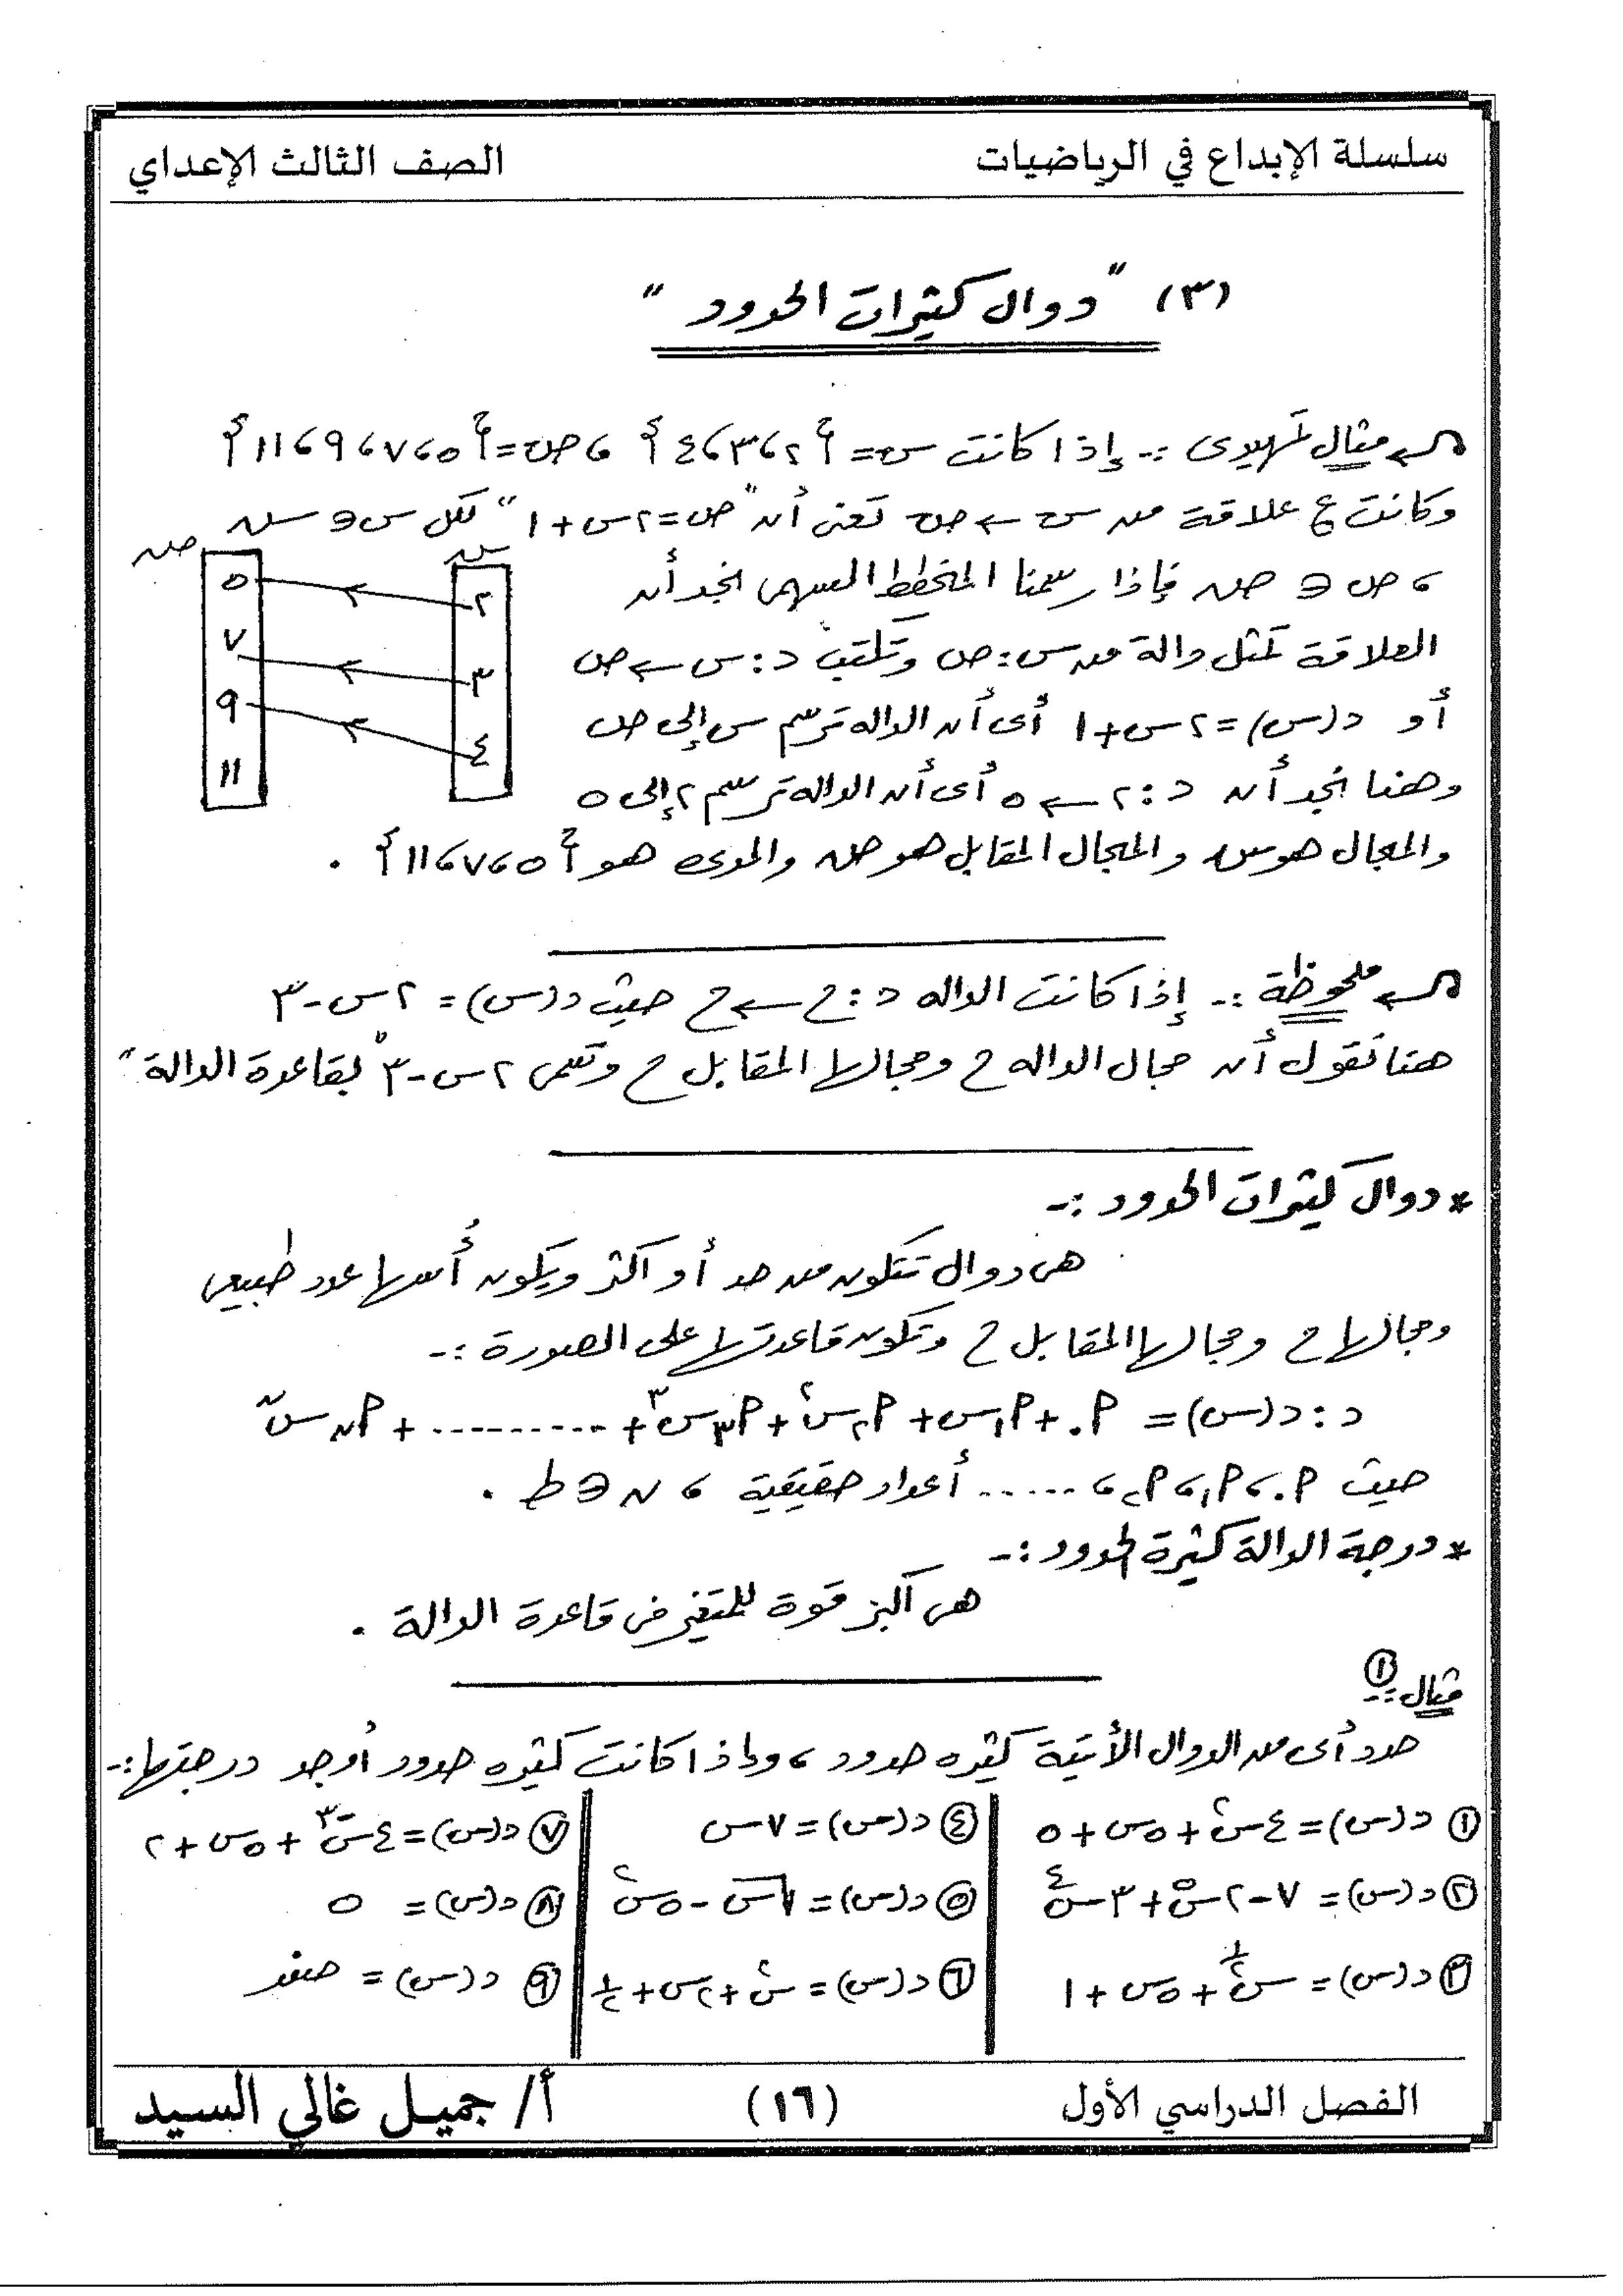 سلسلة الإبداع في الرياضيات
الصف الثالث الإعداي
(٣) "دوال كثيرات الحدود"
مثال تمهيدى :- إذا كانت س = {٢، ٣، ٤} ، ص = {٥، ٧، ٩، ١١}
وكانت ع علاقة من س ← ص تعنى أن "ص = ٢س + ١" لكل س ∈ س
، ص ∈ ص فإذا رسمنا المخطط السهمى نجد أن
العلاقة تمثل دالة من س : ص وتكتب د : س ← ص
أو د(س) = ٢س + ١ أى أن الداله ترسم س إلى ص
وهنا نجد أن د : ٢ ← ٥ أى أن الداله ترسم ٢ إلى ٥
والمجال هو س والمجال المقابل هو ص والمدى هو {٥، ٧، ١١} .
س
ص
٢
٣
٤
٥
٧
٩
١١
ملحوظة :- إذا كانت الداله د : ح ← ح حيث د(س) = ٢س - ٣
هنا نقول أن مجال الداله ح ومجالها المقابل ح وتسمى ٢س - ٣ "بقاعدة الدالة"
* دوال كثيرات الحدود :-
هى دوال تتكون من حد أو اكثر ويكون أسها عدد طبيعى
ومجالها ح ومجالها المقابل ح وتكون قاعدتها على الصورة :-
د : د(س) = م₀ + م₁س + م₂س² + م₃س³ + ......... + مₙسⁿ
حيث م₀، م₁، م₂، ...... أعداد حقيقية ، ن ∈ ط .
* درجة الدالة كثيرة الحدود :-
هى أكبر قوة للمتغير فى قاعدة الدالة .
مثال ① :-
حدد أى من الدوال الأتية كثيره حدود ، وإذا كانت كثيره حدود أوجد درجتها :-
① د(س) = ٤س² + ٥س + ٥
② د(س) = ٧ - ٢س⁵ + ٣س⁴
③ د(س) = س^(١/٢) + ٥س + ١
④ د(س) = ٧س
⑤ د(س) = √س - ٥س²
⑥ د(س) = س² + ٢س + ١/٢
⑦ د(س) = ٤س⁻³ + ٥س + ٢
⑧ د(س) = ٥
⑨ د(س) = صفر
الفصل الدراسي الأول
(١٦)
أ/ جميل غالي السيد